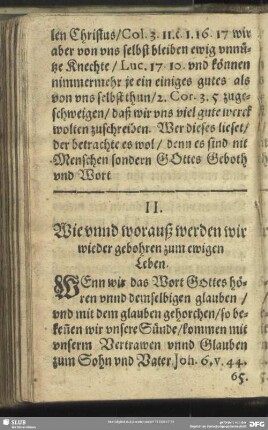 len Christus/Col. 3. 11. c. 1. 16. 17 wir
aber von vns selbst bleiben ewig vnnü-
tze Knechte / Luc. 17 10. vnd können
nimmermehr je ein einiges gutes als
von vns selbst thun/2. Cor. 3. 5 zuge-
schweigen/ daß wir vns viel gute werck
wolten zuschreiben. Wer dieses lieset/
der betrachte es wol/ denn es sind nit
Menschen sondern GOttes Geboth
vnd Wort
II.
Wie vnnd worauß werden wir
wieder gebohren zum ewigen
Leben.
WEnn wir das Wort GOttes hö-
ren vnnd demselbigen glauben /
vnd mit dem glauben gehorchen/so be-
keñen wir vnsere Sünde/kommen mit
vnserm Vertrawen vnnd Glauben
zum Sohn vnd Vater Joh. 6, v. 44.
65.
SLUB
DFG